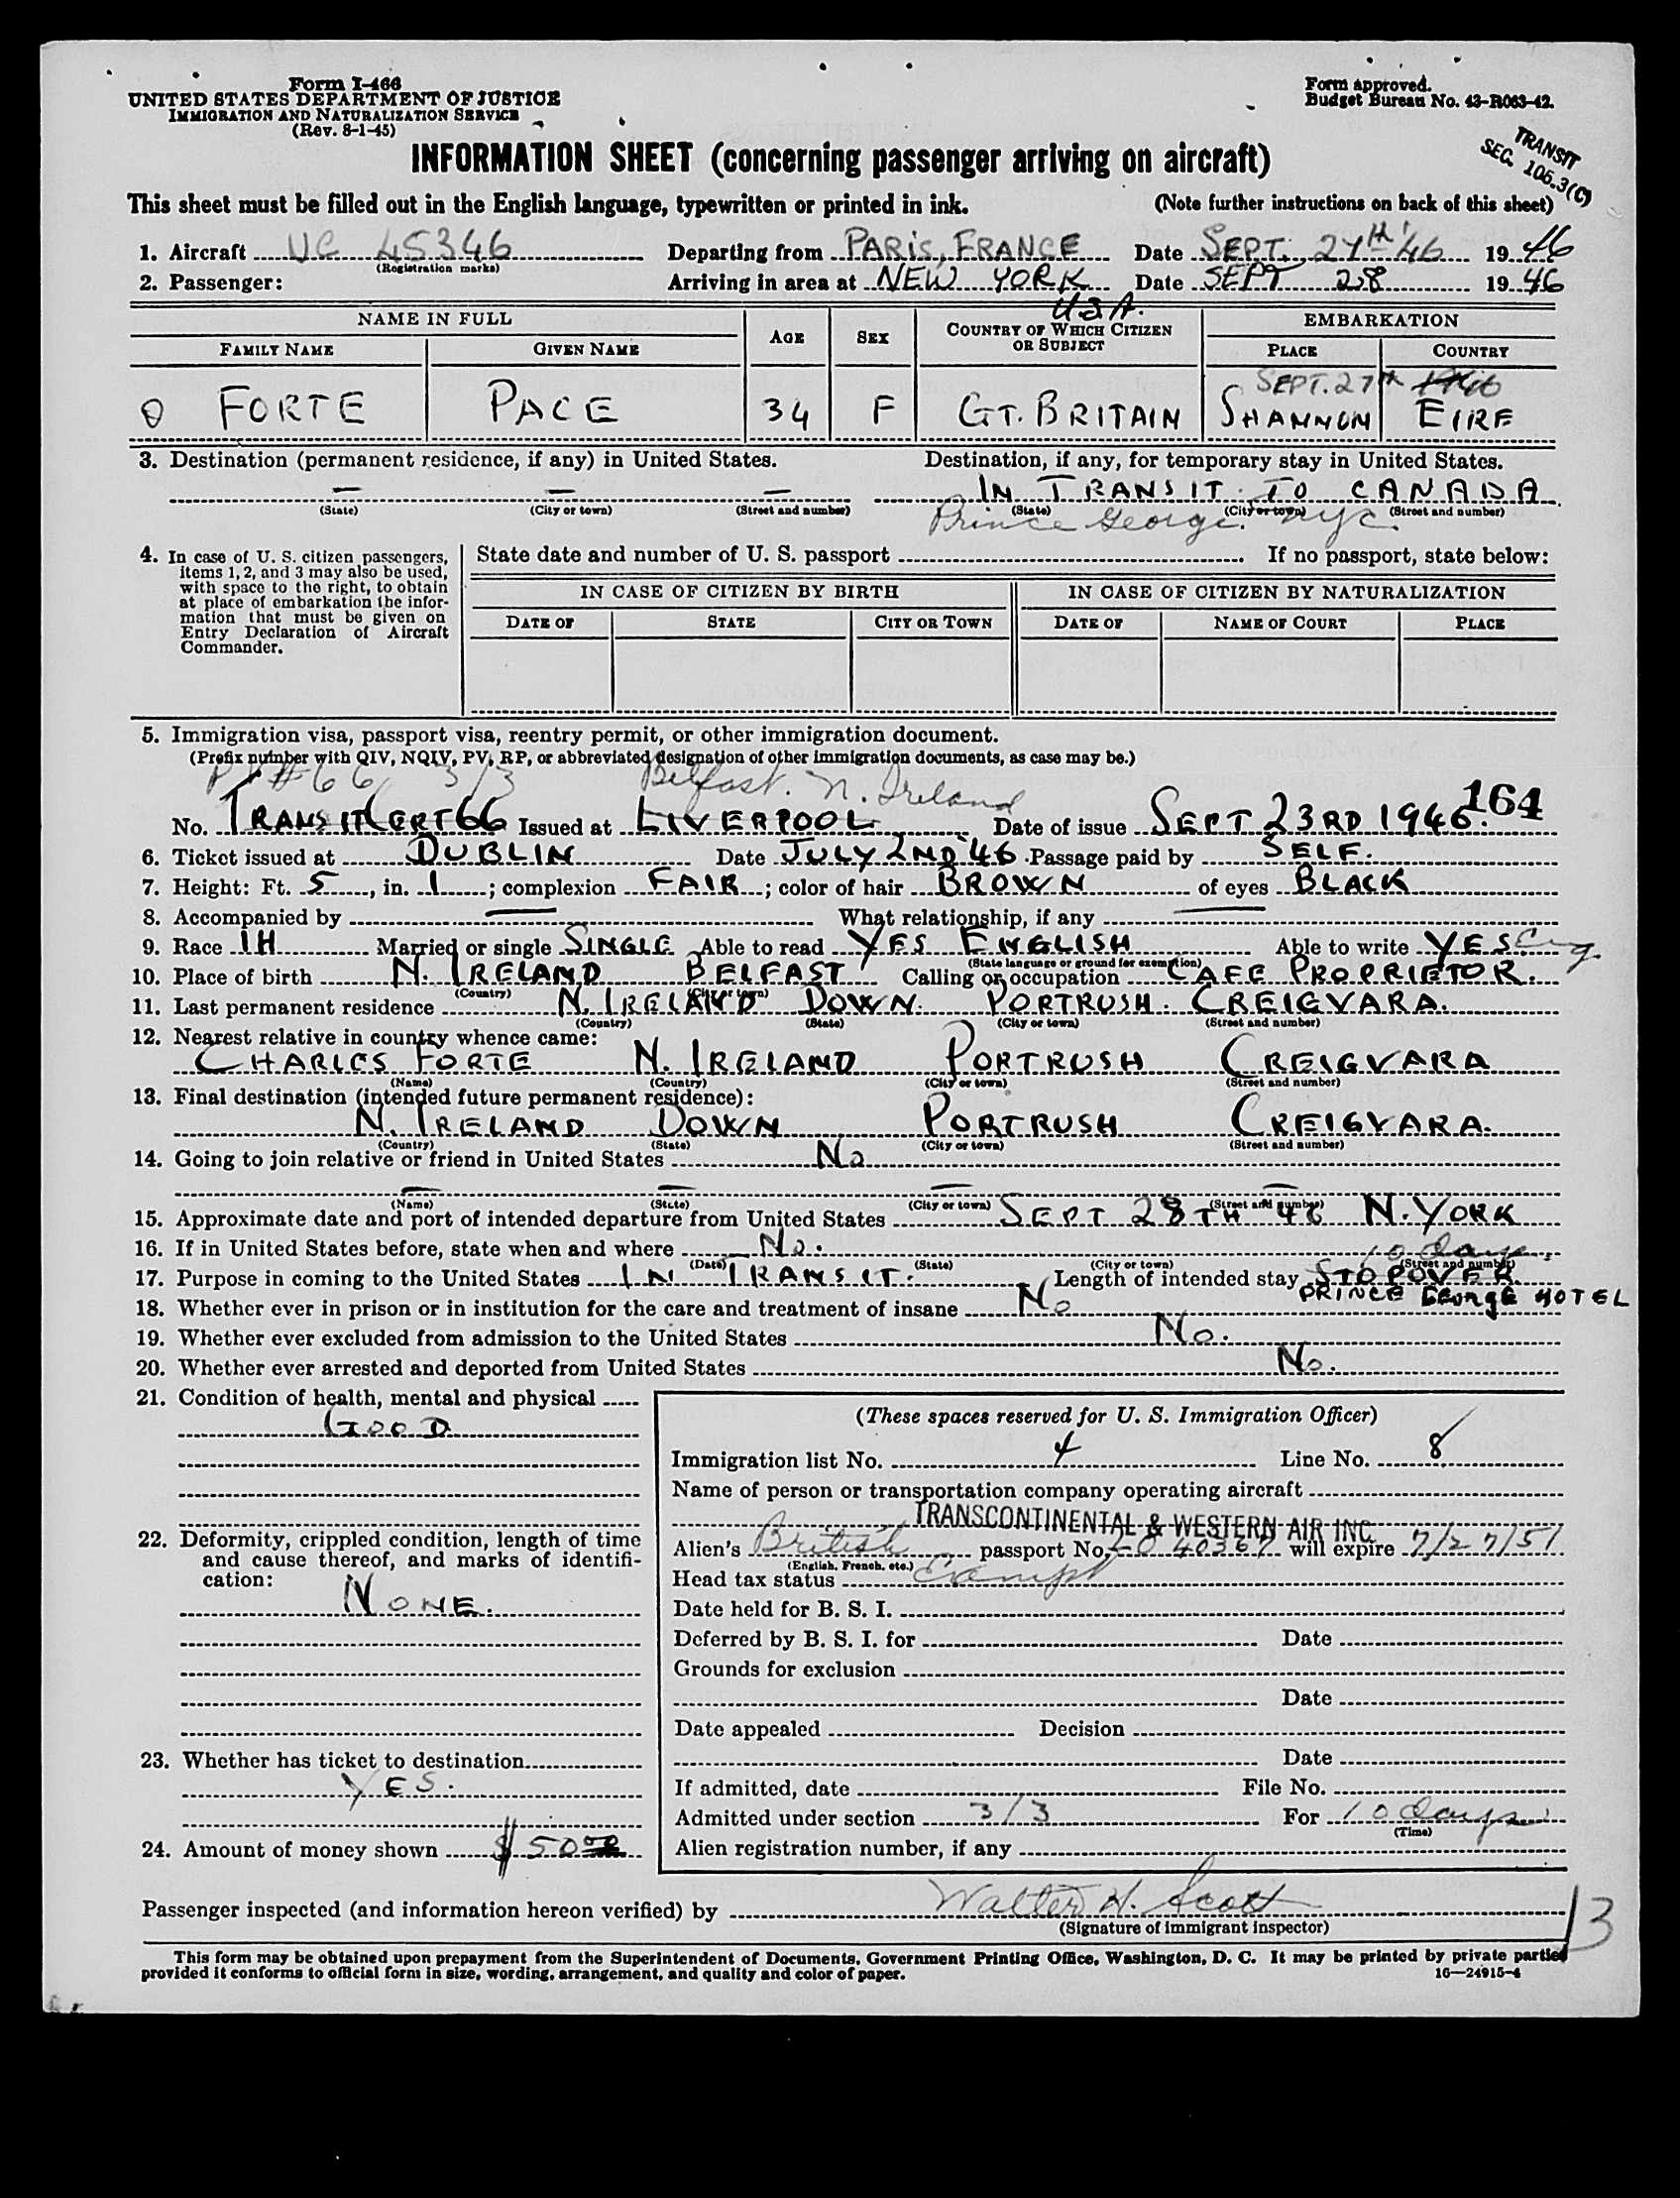 Form I-466
UNITED STATES DEPARTMENT OF JUSTICE
IMMIGRATION AND NATURALIZATION SERVICE
(Rev. 8-1-45)
Form approved.
Budget Bureau No. 43-R063-42.
TRANSIT
SEC. 106.3(C)
INFORMATION SHEET (concerning passenger arriving on aircraft)
This sheet must be filled out in the English language, typewritten or printed in ink. (Note further instructions on back of this sheet)
1. Aircraft UC 45346 Departing from PARIS, FRANCE Date SEPT. 27th '46 1946
(Registration marks)
2. Passenger: Arriving in area at NEW YORK Date SEPT 28 1946
U.S.A.
NAME IN FULL AGE SEX COUNTRY OF WHICH CITIZEN OR SUBJECT EMBARKATION
FAMILY NAME GIVEN NAME PLACE COUNTRY
SEPT. 27th 1946
FORTE PACE 34 F GT. BRITAIN SHANNON EIRE
3. Destination (permanent residence, if any) in United States. Destination, if any, for temporary stay in United States.
— — — IN TRANSIT TO CANADA
(State) (City or town) (Street and number) (State) (City or town) (Street and number)
Prince George. NYC.
4. In case of U. S. citizen passengers, items 1, 2, and 3 may also be used, with space to the right, to obtain at place of embarkation the information that must be given on Entry Declaration of Aircraft Commander.
State date and number of U. S. passport If no passport, state below:
IN CASE OF CITIZEN BY BIRTH IN CASE OF CITIZEN BY NATURALIZATION
DATE OF STATE CITY OR TOWN DATE OF NAME OF COURT PLACE
5. Immigration visa, passport visa, reentry permit, or other immigration document.
(Prefix number with QIV, NQIV, PV, RP, or abbreviated designation of other immigration documents, as case may be.)
#66 3/3 Belfast. N. Ireland
164
No. TRANSIT CERT 66 Issued at LIVERPOOL Date of issue SEPT 23RD 1946.
6. Ticket issued at DUBLIN Date JULY 2ND '46 Passage paid by SELF.
7. Height: Ft. 5, in. 1; complexion FAIR; color of hair BROWN of eyes BLACK
8. Accompanied by — What relationship, if any —
9. Race IH Married or single SINGLE Able to read YES ENGLISH Able to write YES Eng
(State language or ground for exemption)
10. Place of birth N. IRELAND BELFAST Calling or occupation CAFE PROPRIETOR.
(Country) (City or town)
11. Last permanent residence N. IRELAND DOWN. PORTRUSH. CREIGVARA.
(Country) (State) (City or town) (Street and number)
12. Nearest relative in country whence came:
CHARLES FORTE N. IRELAND PORTRUSH CREIGVARA
(Name) (Country) (City or town) (Street and number)
13. Final destination (intended future permanent residence):
N. IRELAND DOWN PORTRUSH CREIGVARA.
(Country) (State) (City or town) (Street and number)
14. Going to join relative or friend in United States No
— — — —
(Name) (State) (City or town) (Street and number)
15. Approximate date and port of intended departure from United States SEPT 28TH 46 N. YORK
16. If in United States before, state when and where No.
(Date) (State) (City or town) (Street and number)
10 days
17. Purpose in coming to the United States IN TRANSIT. Length of intended stay STOPOVER.
PRINCE GEORGE HOTEL
18. Whether ever in prison or in institution for the care and treatment of insane No
19. Whether ever excluded from admission to the United States No.
20. Whether ever arrested and deported from United States No.
21. Condition of health, mental and physical
GOOD
22. Deformity, crippled condition, length of time and cause thereof, and marks of identification:
NONE.
23. Whether has ticket to destination
YES.
24. Amount of money shown $50
(These spaces reserved for U. S. Immigration Officer)
Immigration list No. 4 Line No. 8
Name of person or transportation company operating aircraft
TRANSCONTINENTAL & WESTERN AIR INC.
Alien's British passport No. 40367 will expire 7/27/51
(English, French, etc.)
Head tax status Exempt
Date held for B. S. I.
Deferred by B. S. I. for Date
Grounds for exclusion
Date
Date appealed Decision
Date
If admitted, date File No.
Admitted under section 3/3 For 10 days
(Time)
Alien registration number, if any
Passenger inspected (and information hereon verified) by Walter H. Scott
(Signature of immigrant inspector)
13
This form may be obtained upon prepayment from the Superintendent of Documents, Government Printing Office, Washington, D. C. It may be printed by private parties
provided it conforms to official form in size, wording, arrangement, and quality and color of paper. 16—24915-4